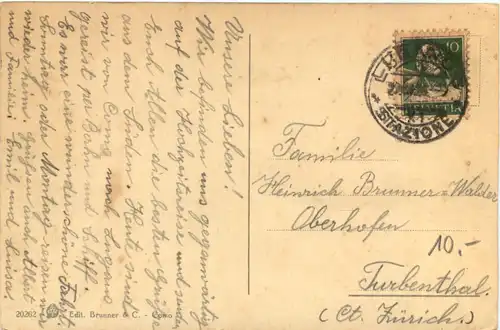 Unsere Lieben!
Wir befinden uns gegenwärtig
auf der Hochzeitsreise und senden
Euch Allen die besten Grüsse
aus dem Süden. Heute sind
wir von Como nach Lugano
gereist per Bahn und Schiff.
Es war eine wunderschöne Fahrt.
Sonntag oder Montag reisen wir
wieder heim. Grüssen auch Albert
und Familie! Emil und Luisa.
20262 Edit. Brunner & C. - Como
10
HELVETIA
STAZIONE
Familie
Heinrich Brunner-Walder
Oberhofen
10.-
Turbenthal.
(Ct. Zürich)